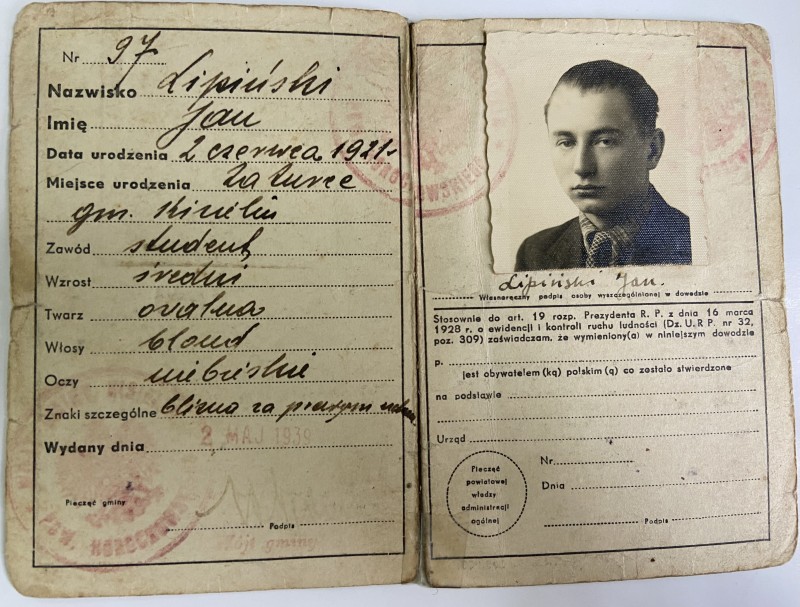 Nr 97
Nazwisko Lipiński
Imię Jan
Data urodzenia 2 czerwca 1921 r
Miejsce urodzenia Zaturce
gm. Kisielin
Zawód student
Wzrost średni
Twarz owalna
Włosy blond
Oczy niebieskie
Znaki szczególne blizna za prawym uchem
Wydany dnia 2 MAJ 1939
Pieczęć gminy
Podpis
Wójt gminy
Lipiński Jan.
Własnoręczny podpis osoby wyszczególnionej w dowodzie
Stosownie do art. 19 rozp. Prezydenta R. P. z dnia 16 marca
1928 r. o ewidencji i kontroli ruchu ludności (Dz. U. R P. nr 32,
poz. 309) zaświadczam, że wymieniony(a) w niniejszym dowodzie
p.
jest obywatelem (ką) polskim (ą) co zostało stwierdzone
na podstawie
Urząd
Pieczęć
powiatowej
władzy
administracji
ogólnej
Nr.
Dnia
Podpis